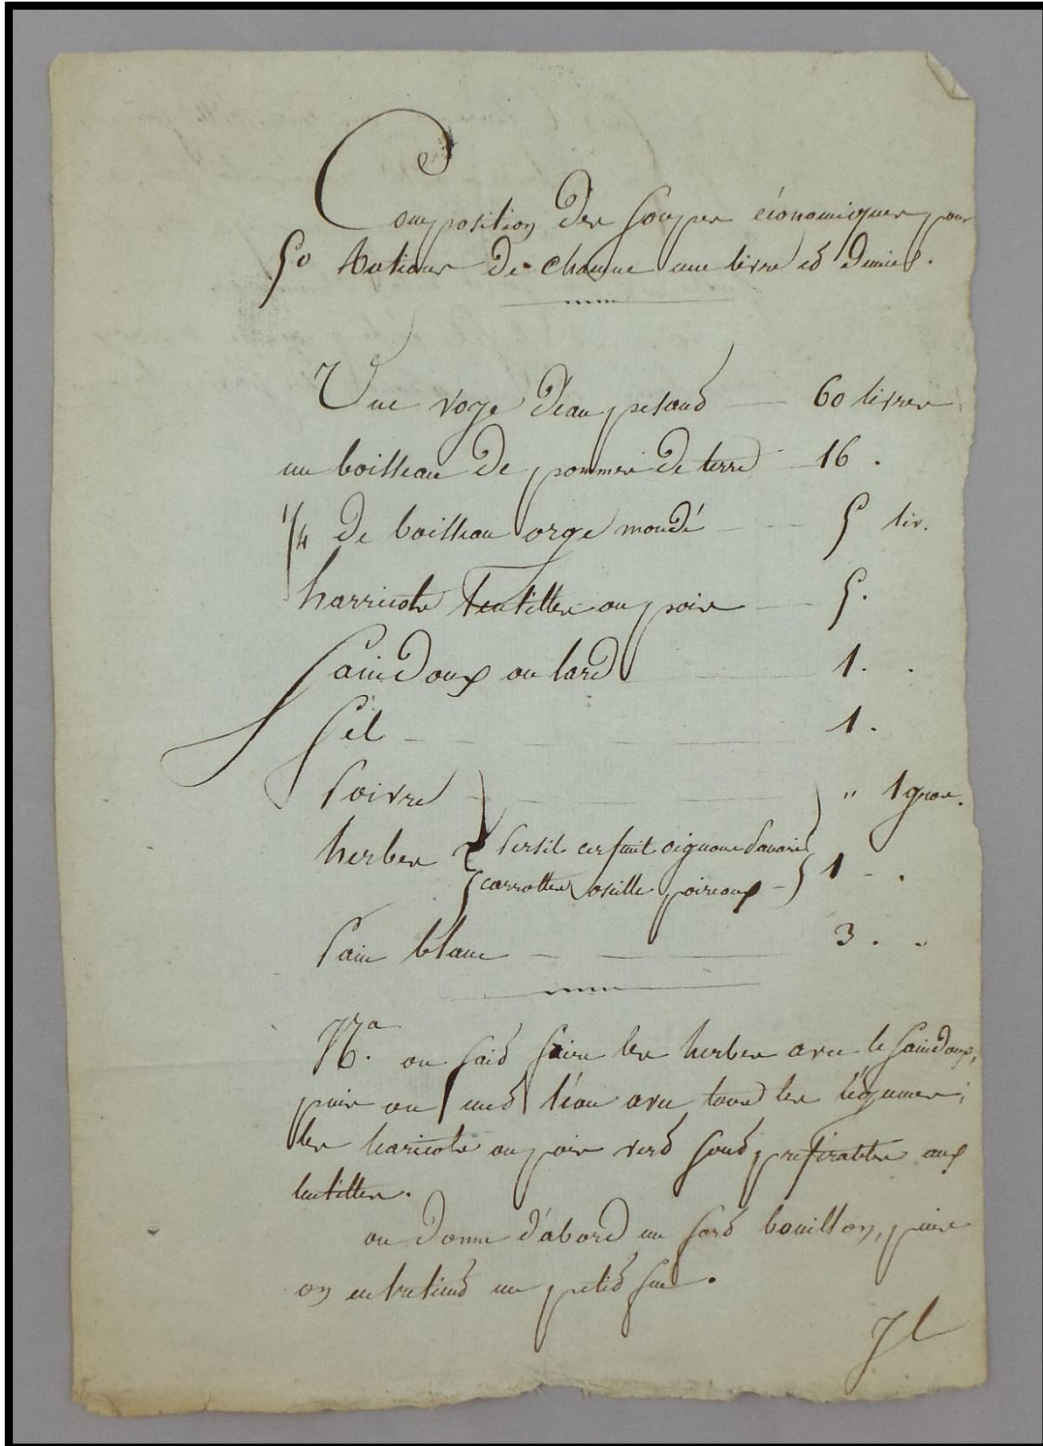 Composition des soupes économiques pour
50 Rations de chacune une livre et demie.
Une voye d'eau pesant — 60 livres
un boisseau de pommes de terre — 16.
1/4 de boisseau orge mondé — 5 liv.
harricots lentilles ou pois — 5.
Saindoux ou lard — 1.
Sel — 1.
Poivre — " 1 gros.
herbes { Persil cerfeuil oignons Panais
carrottes oseille poireaux } 1 - .
Pain blanc — 3. "
Na. on fait frire les herbes avec le saindoux,
puis on met l'eau avec tous les légumes;
les haricots ou pois verd sont préférables aux
lentilles.
on donne d'abord un fort bouillon, puis
on entretient un petit feu.